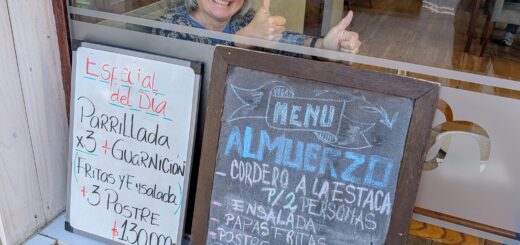 Especial
del Día
PARRILLADA
x3 + GUARNICIÓN
FRITAS Y ENSALADA
+3 POSTRE
$130.000
MENU
ALMUERZO
CORDERO A LA ESTACA
P/2 PERSONAS
ENSALADA
PAPAS FRITAS
POSTRE